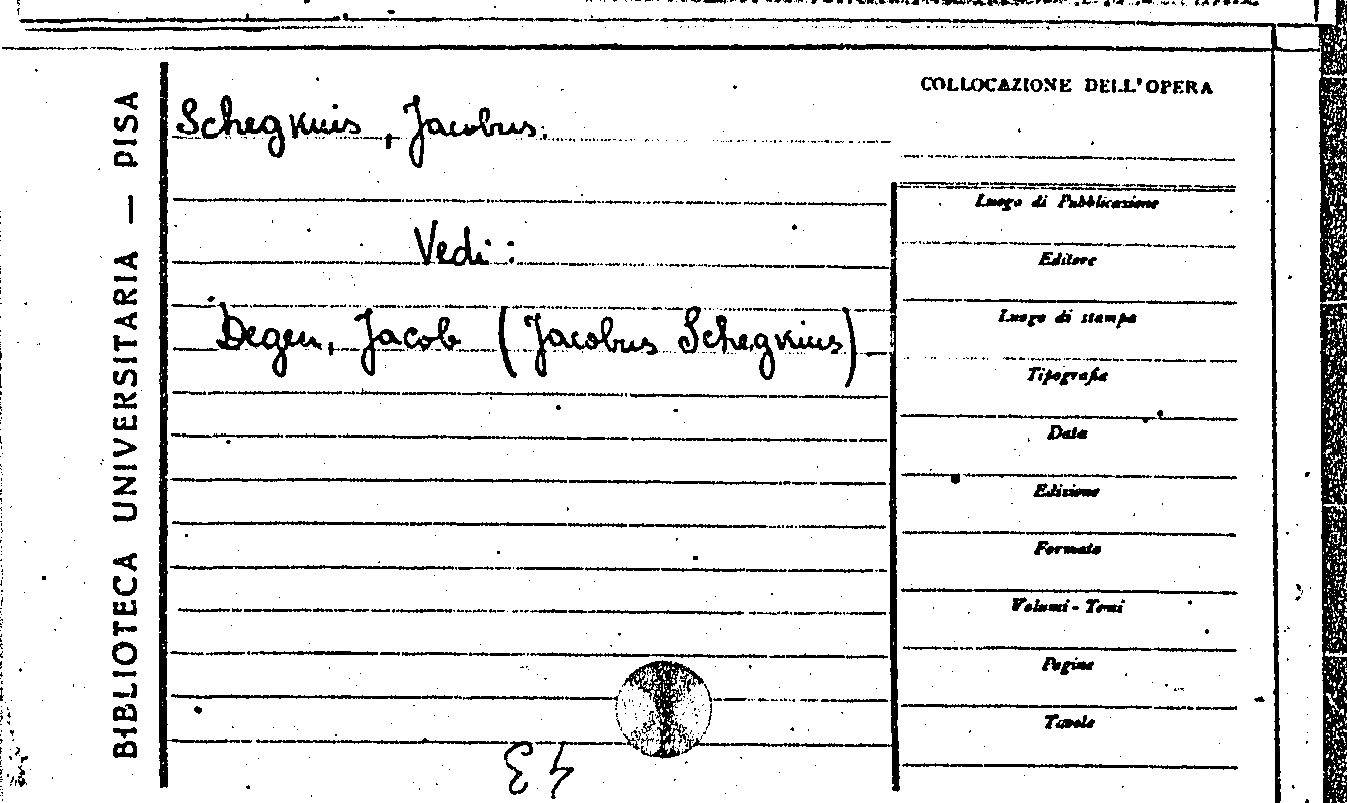 BIBLIOTECA UNIVERSITARIA — PISA
Schegkius, Jacobus.
Vedi:
Degen, Jacob (Jacobus Schegkius)
43
COLLOCAZIONE DELL'OPERA
Luogo di Pubblicazione
Editore
Luogo di stampa
Tipografia
Data
Edizione
Formato
Volumi - Tomi
Pagine
Tavole